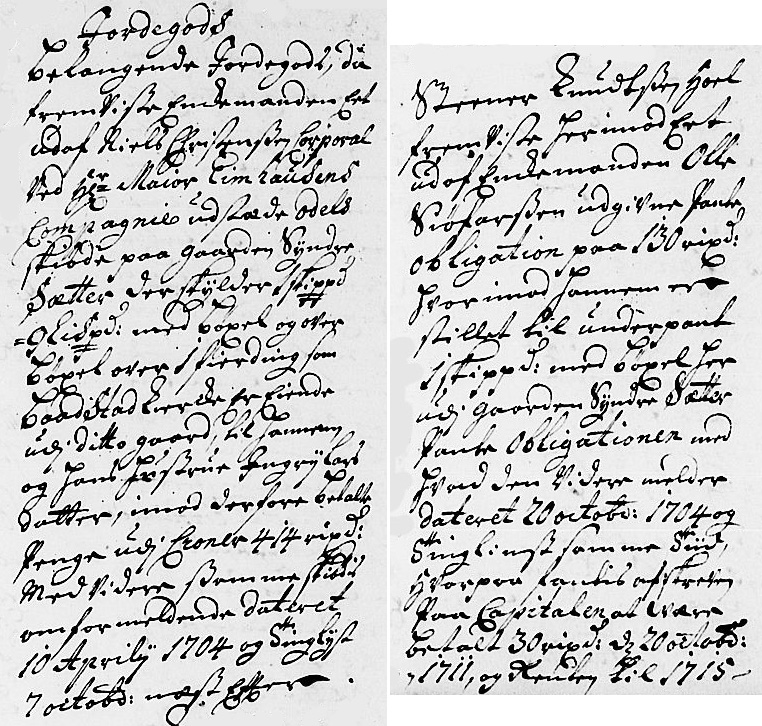 Jordegods
belangende Jordegods, da
fremviste Enckemanden Eet
udaf Niels Christenssen Corporal
ved Hr: Maior Cim Lautsens
Compagnie udstæde odels
skiøde paa gaarden Syndre
Sætter der skylder 1 skippd
9 Lispd: med böxel og over
böxel over 1 fierding som
Baadstad Kircke er Eiende
udj ditto gaard, til hannem
og hans Hustrue Ingry Lars
datter, imod derfore betalte
Penge udj Croner 414 rixd:
Med videre ssom me skiödis
omformeldende dateret
10 Aprily 1704 og Tinglyst
7 octobr: næst Effter
Steener Knudtssen Hoel
fremviste herimod Eet
udaf Enckemanden Olle
Siofarssen udgivne Pante
obligation paa 130 rixd:
hvorimod hannem er
stillet til underpant
1 skippd: med böxel her
udj gaarden Syndre Sætter
Pante Obligationen med
hvad den videre melder
dateret 20 octobr: 1704 og
Tinglinst samme Tiid,
Hvorpaa fantis afskreven
Paa Capitalen at være
betalt 30 rixd: d 20 octobr:
1711, og Renten til 1715